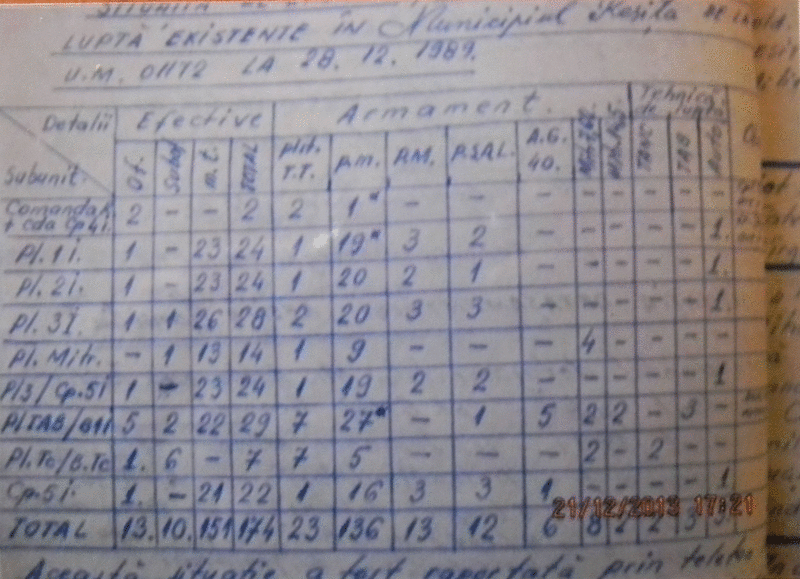 LUPTĂ EXISTENTE ÎN Municipiul Reșița
U.M. 01172 LA 28. 12. 1989.
Detalii Efective Armament. Tehnică de luptă
Subunit. Of. Subof. m.t. TOTAL pist. T.T. p.m. P.M. P.S.A.L. A.G. 40. TANC TAB Auto
Comanda + cda Cp4i. 2 - - 2 2 1* - - - - - - - -
Pl. 1 i. 1 - 23 24 1 19* 3 2 - - - - - 1.
Pl. 2 i. 1 - 23 24 1 20 2 1 - - - - - 1.
Pl. 3 I. 1 1 26 28 2 20 3 3 - - - - - 1.
Pl. Mitr. - 1 13 14 1 9 - - - 4 - - - -
Pl3/Cp.5i 1 - 23 24 1 19 2 2 - - - - - 1
Pl TAB/B1i 5 2 22 29 7 27* - 1 5 2 2 - 3 -
Pl.Tc/B.Tc 1. 6 - 7 7 5 - - - 2 - 2 - -
Cp.5i. 1. - 21 22 1 16 3 3 1 - - - - 1
TOTAL 13. 10. 151 174 23 136 13 12 6 8 2 2 3 5
21/12/2013 17:21
Această situație a fost raportată prin